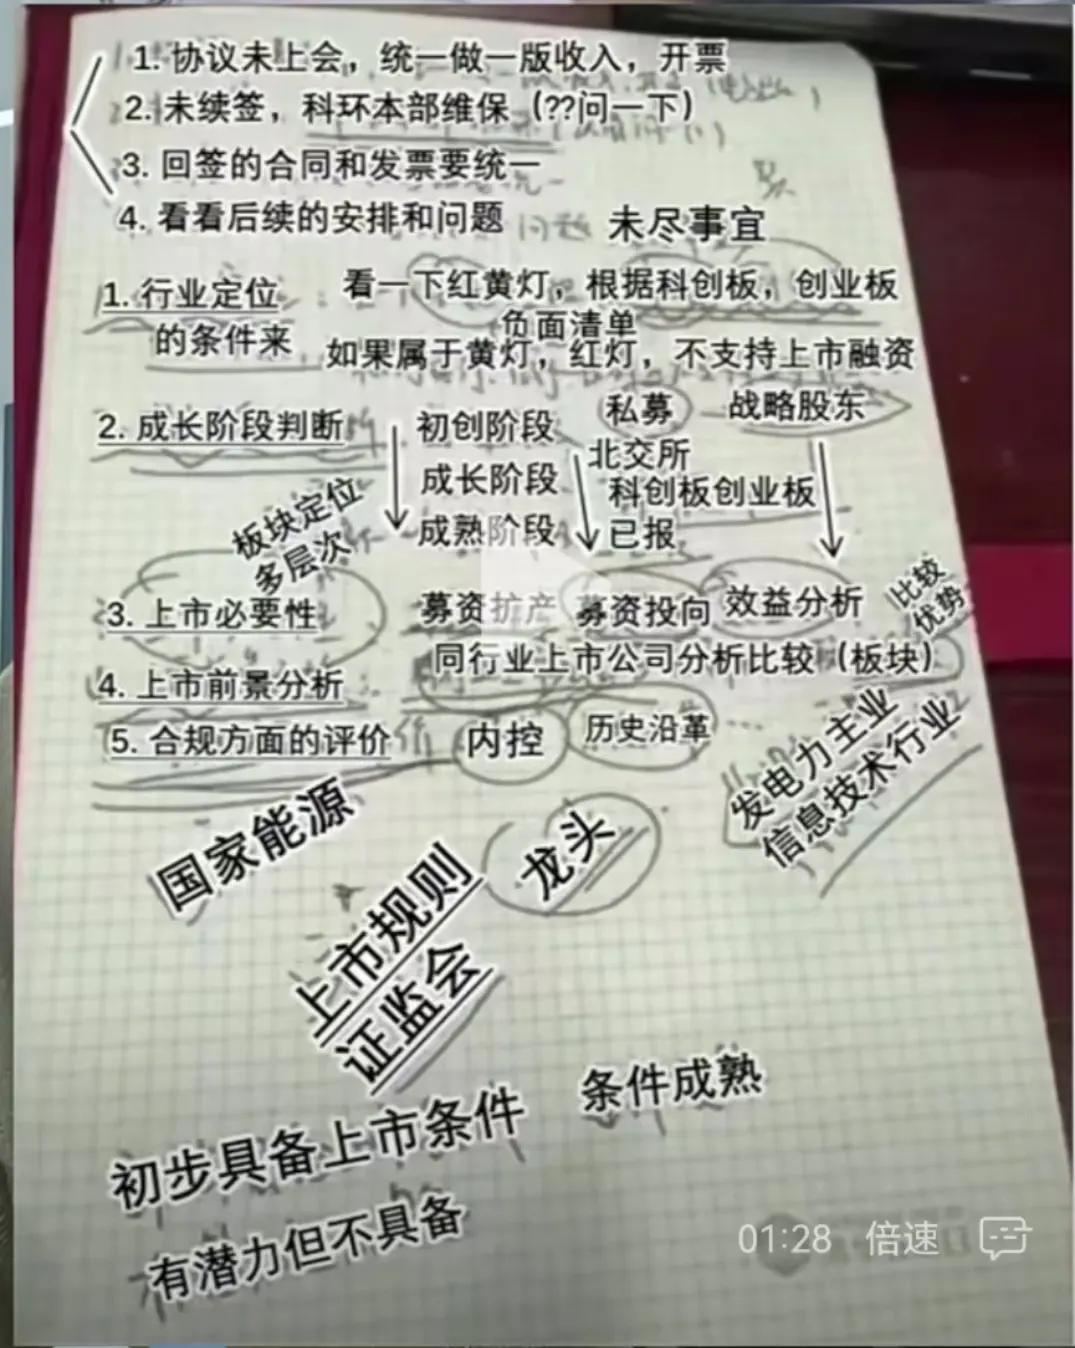 1. 协议未上会，统一做一版收入，开票
2. 未续签，科环本部维保（??问一下）
3. 回签的合同和发票要统一
4. 看看后续的安排和问题
未尽事宜
1. 行业定位
的条件来
看一下红黄灯，根据科创板，创业板
负面清单
如果属于黄灯，红灯，不支持上市融资
2. 成长阶段判断
初创阶段
成长阶段
成熟阶段
私募
战略股东
北交所
科创板创业板
已报
板块定位
多层次
3. 上市必要性
募资扩产
募资投向
效益分析
比较
优势
同行业上市公司分析比较（板块）
4. 上市前景分析
5. 合规方面的评价
内控
历史沿革
发电力主业
信息技术行业
国家能源
龙头
上市规则
证监会
初步具备上市条件
条件成熟
有潜力但不具备
01:28 倍速